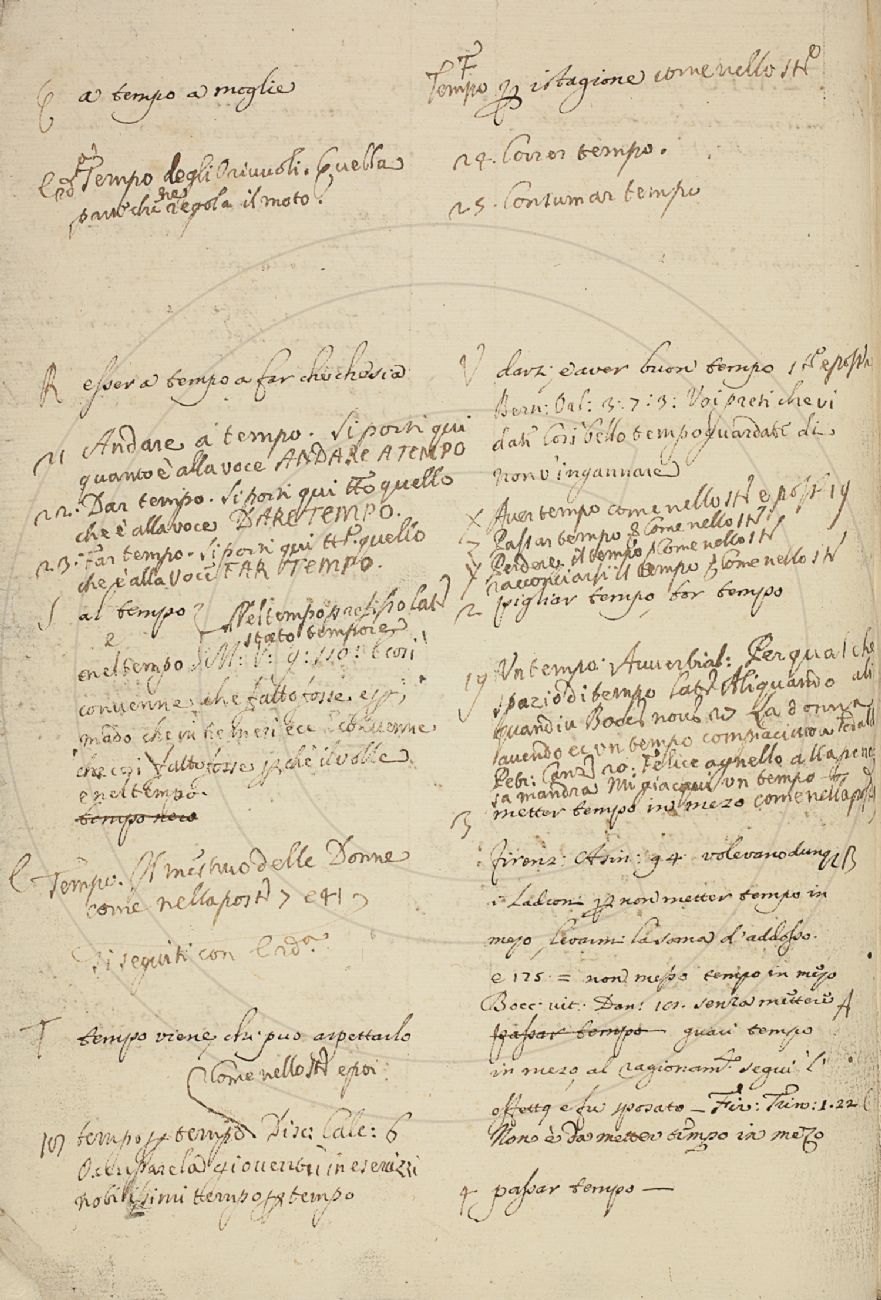 a tempo a moglie
Tempo degli Oriuvoli. Quella
parte che regola il moto.
R esser a tempo a far che che sia
21 Andare a tempo. Si porrà qui
quanto è alla voce ANDARE A TEMPO
22. Dar tempo. Si porrà qui tto quello
che è alla voce DARE TEMPO.
23. Far tempo. Si porrà qui tto quello
che è alla voce FAR TEMPO.
S al tempo Nel tempo prefisso lat
stato tempore
2
e nel tempo M: V: 9: 110: E così
convenne, che fatto fosse
mado che in tre mesi ecc convenne
che così fatto fosse ꝑ chè il volle
e nel tempo.
Tempo. Il mestruo delle Donne
come nella post 7 e 41
Si seguiti con
T tempo viene, chi può aspettarlo
Come nello st e poi
tempo ꝑ tempo Disc: Calc: 6
Occupare la gioventù in esercizi
nobilissimi tempo ꝑ tempo
F
Tempo ꝑ istagione come nello st
24. Correr tempo.
25. Consumar tempo
V darsi, e aver buon tempo st e post
Bern: Orl: 3: 7: 3: Voi preti che vi
date così bello tempo guardate di
non v'ingannare
X Aver tempo come nello st e post 19
Z Passar tempo Come nello st
Y Perdere il tempo Come nello st
racconciarsi il tempo Come nello st
2 pigliar tempo, tor tempo
19 Un tempo. Avverbial: Per qualche
spazio di tempo Lat Aliquando ali
quandiu Bocc nov 27 La donna
avendo ec un tempo compiaciuto a
Petr: Canz 20: Felice agnello alla peno
sa mandra Mi giacqui un tempo
3 metter tempo in mezo come nella post
firenz: Asin: 94 volevano dunq
i Ladroni ꝑ non metter tempo in
mezo, levarmi la soma d'addosso.
e 125 = non messo tempo in mezo
Bocc: vit: Dan: 101. senza mettere
passar tempo guari tempo
in mezo, al ragionamto. seguì l'
effetto, e fu sposato — Fir: Trin: 1.22
Non è da metter tempo in mezo
4 passar tempo —